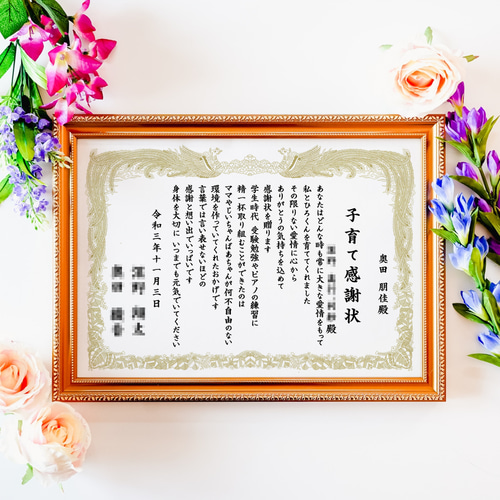 子育て感謝状
奥田 朋佳殿
殿
あなたはどんな時も常に大きな愛情をもって
私とひろくんを育ててくれました
その限りない愛情に心から
ありがとうの気持ちを込めて
感謝状を贈ります
学生時代 受験勉強やピアノの練習に
精一杯取り組むことができたのは
ママやじいちゃんばあちゃんが何不自由のない
環境を作っていてくれたおかげです
言葉では言い表せないほどの
感謝と想い出でいっぱいです
身体を大切に いつまでも元気でいてください
令和三年十一月三日